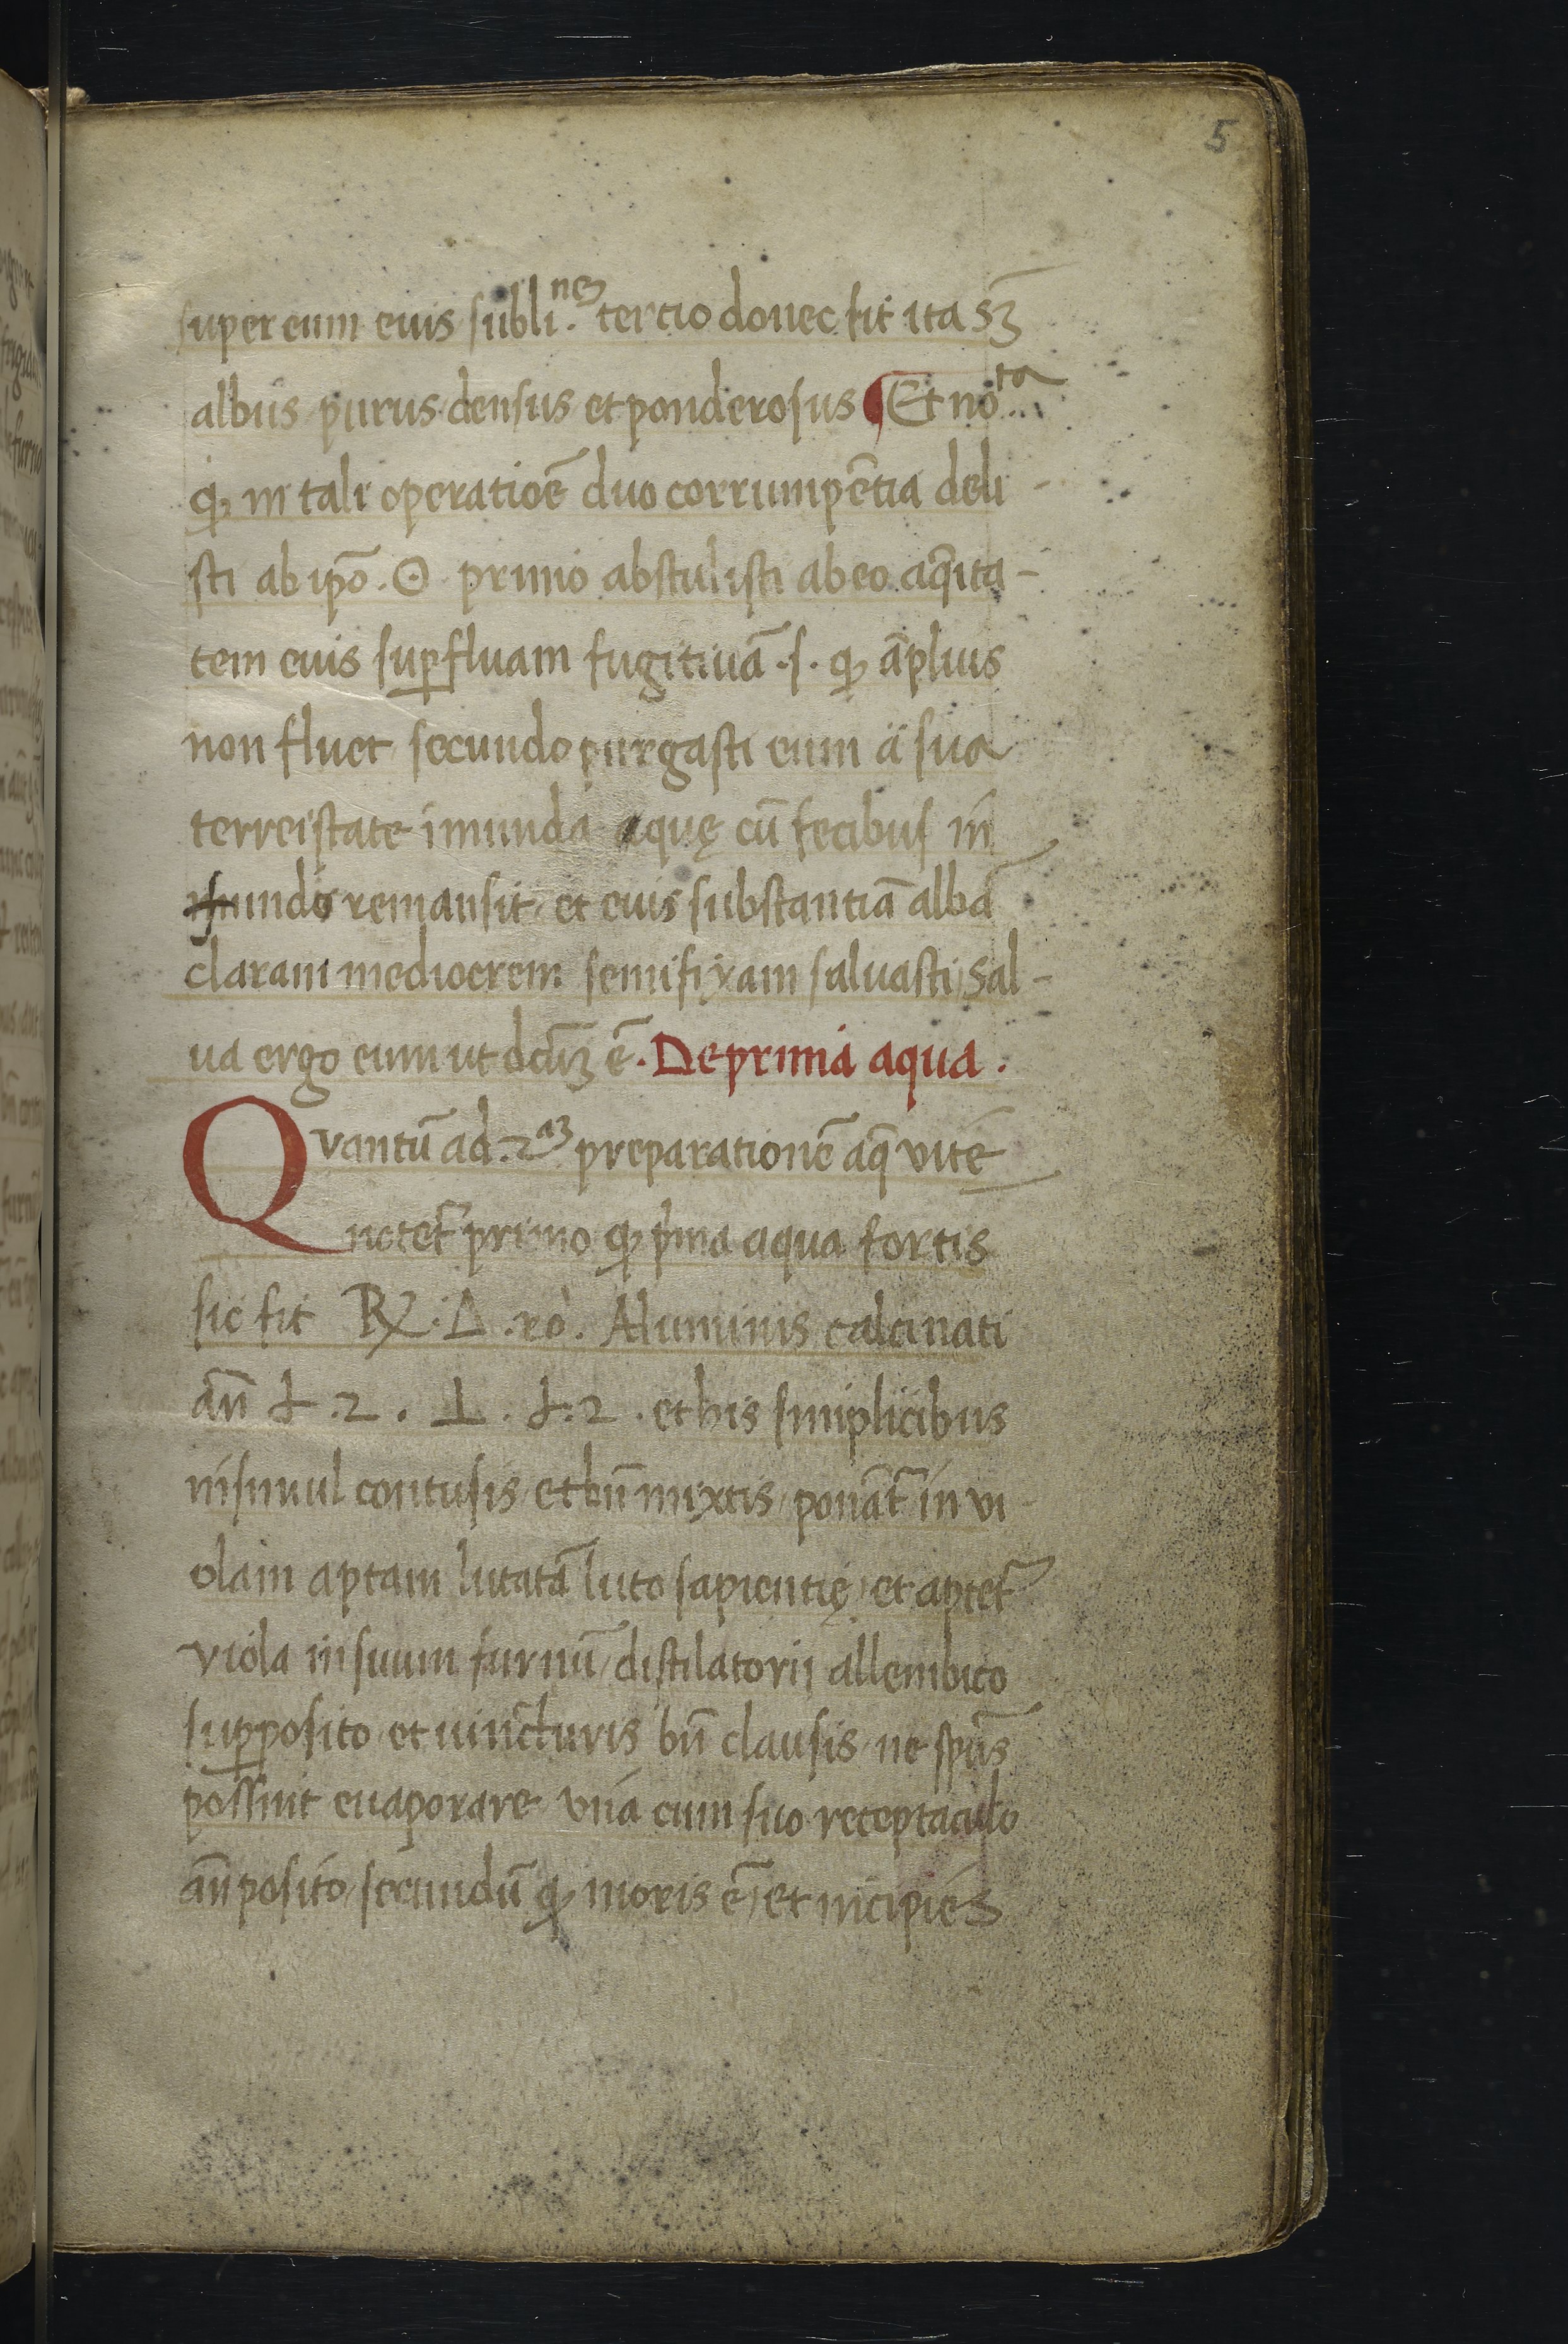 5
super eum euis subli.nēꝫ tercio donec fit ita sꝫ
albus purus densus et ponderosus ¶ Et no.ta
qꝫ in tali operatioē duo corrumpētia deli -
sti ab ipō . ☉ primo abstulisti ab eo aq̄ita -
tem euis suꝑfluam fugitiuā .s. qꝫ āplius
non fluet secundo purgasti eum a sua
terreistate imunda aquę cū fecibus in
mundis remansit et euis substantiā albā
claram mediocrem semifixam saluasti Sal -
ua ergo eum ut dcūꝫ ē . De prima aqua .
Qvantū ad .2.aꝫ preparationē aq̄ vite
notet᷑ primo qꝫ pͥma aqua fortis
sic fit ℞ . Δ . ro . Aluminis calcinati
an̄ ł .2. ⊥ . ł .2. et his simplicibus
insimul contusis et bn̄ mixtis ponāt᷑ in vi -
olam aptam lutatā luto sapientię et aptet᷑
viola in suum furnū distilatorij allembico
suꝑposito et uincturis bn̄ clausis ne sp̄us
possint euaporare vna cum suo receptaculo
an̄ posito secundū qꝫ moris ē et incipies